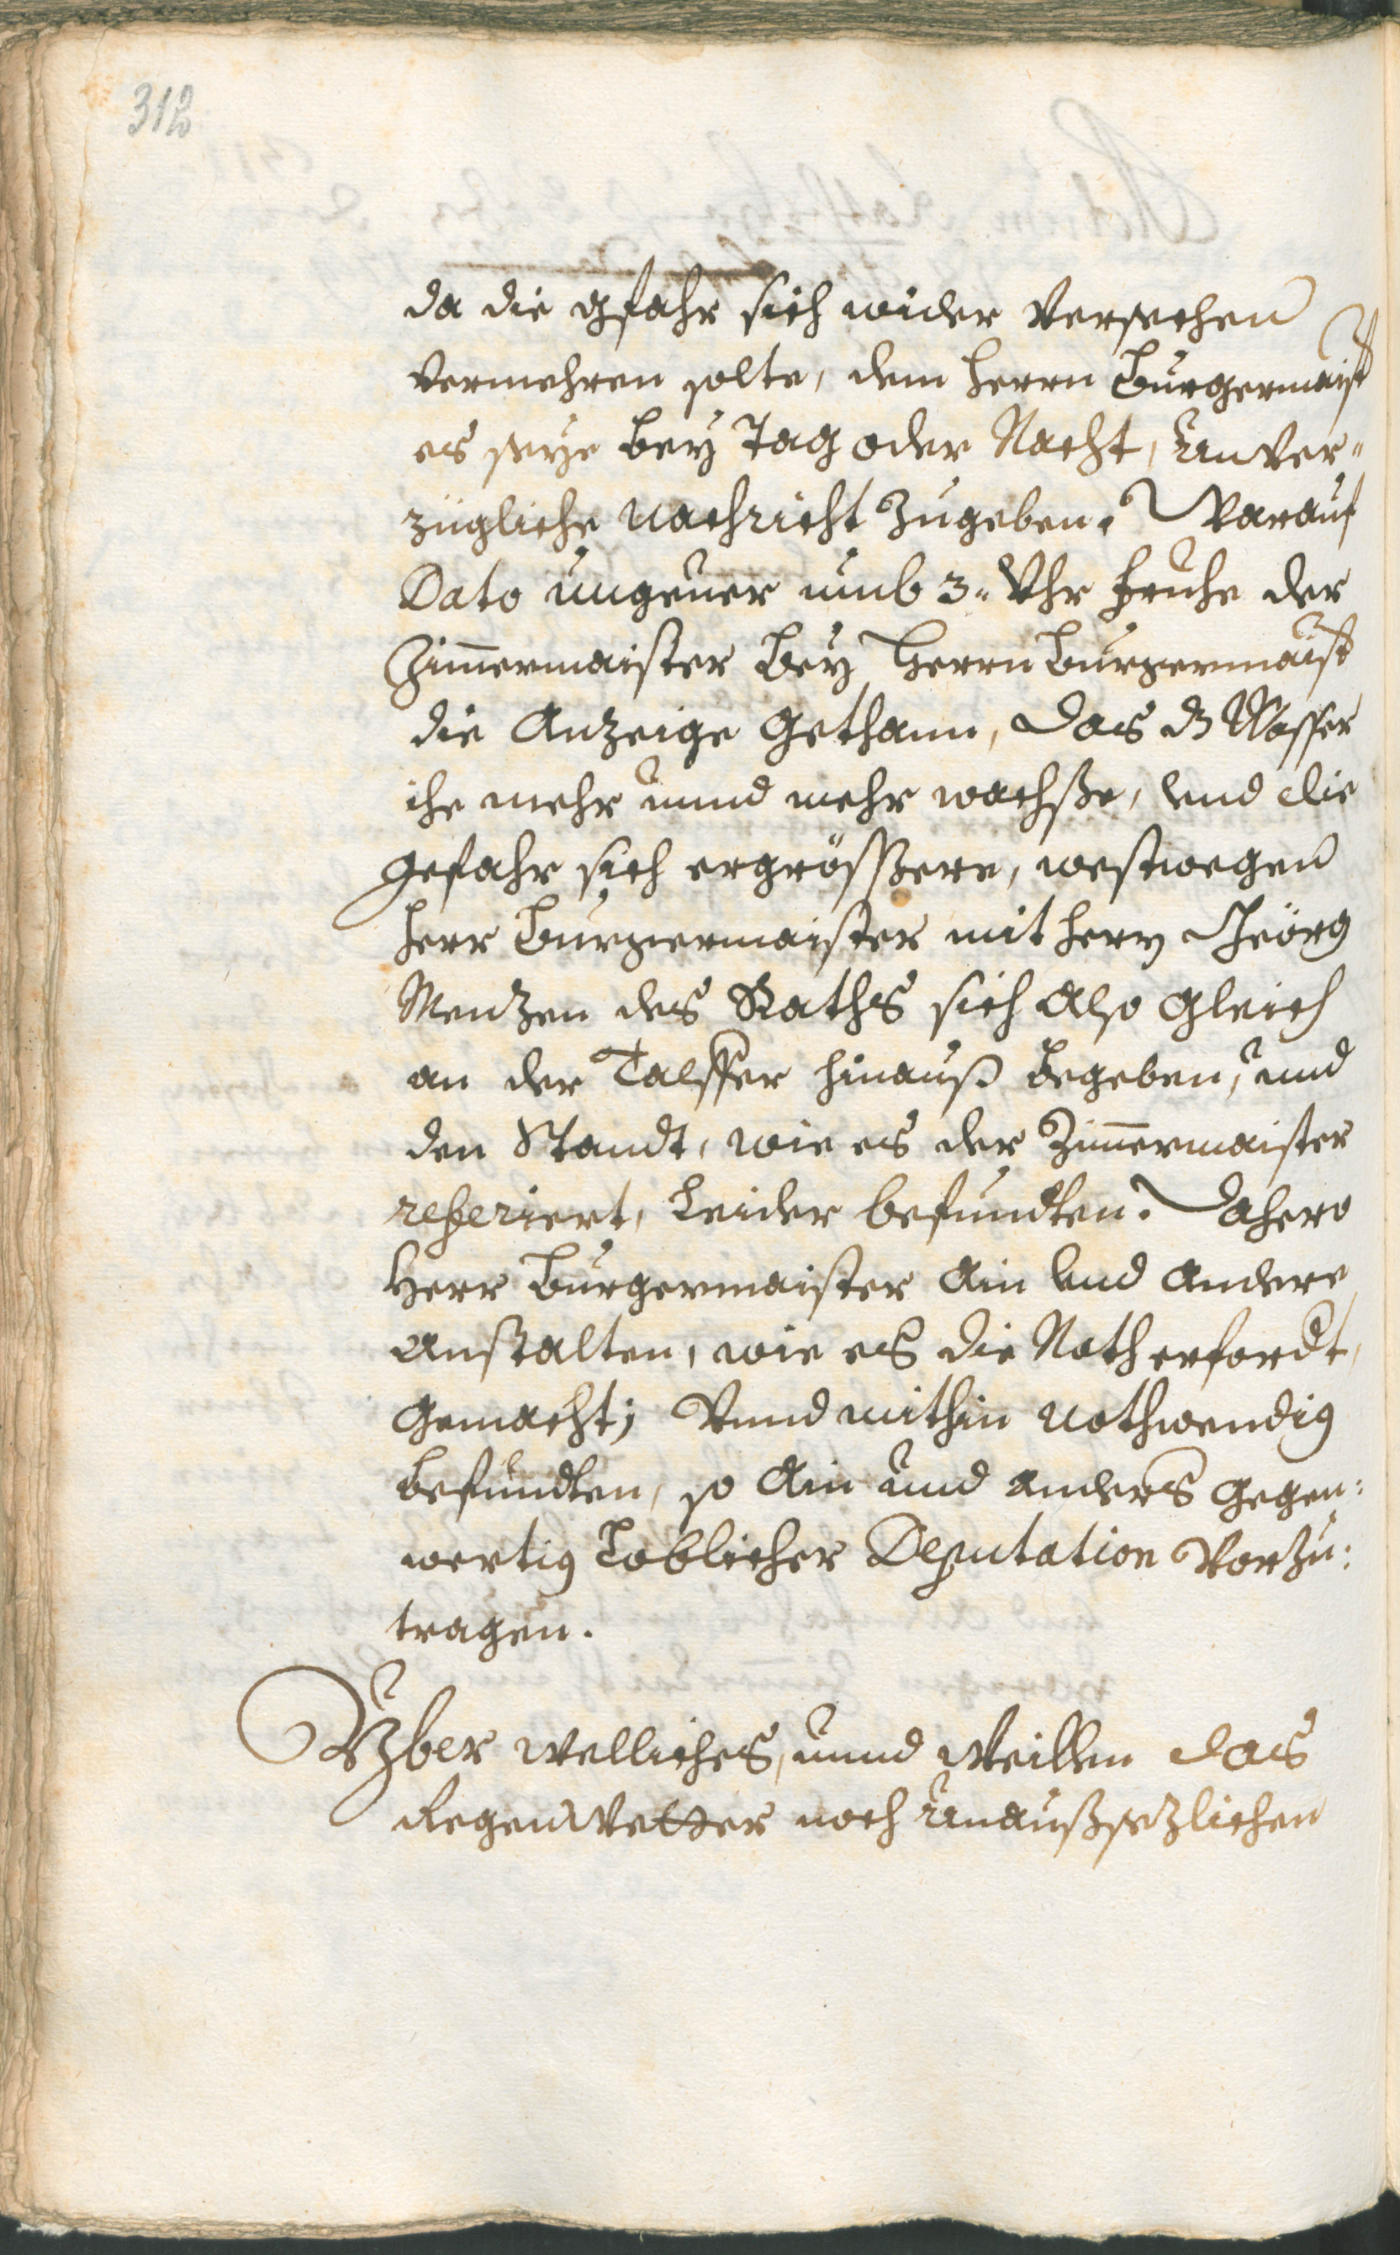 312
da die gfahr sich wider Versechen
vermehren solte, dem herrn Burgermaist
es seye bey Tag oder Nacht, Unver-
zügliche Nachricht zugeben. Warauf
Dato ungeuer umb 3. Uhr fruhe der
Zimermaister bey Herrn Burgermaist
die Anzeige gethann, das dz Wasser
ihe mehr unnd mehr wachße, und die
gefahr sich ergrößere, westwegen
herr Burgermaister mit herrn Geörg
Menzen des Raths sich also gleich
an der Talffer hinauß begeben, und
den Standt, wie es der Zimermaister
referiert, Leider befundten. Dahero
Herr Burgermaister ain und andere
Anstalten, wie es die Noth erfordt,
gemacht; Unnd mithin nothwendig
befundten, so ain und anders gegen:
wertig Loblicher Deputation vorzu:
tragen.
Yber welliches, unnd weillen das
Regenwetter noch unaußsezlichen